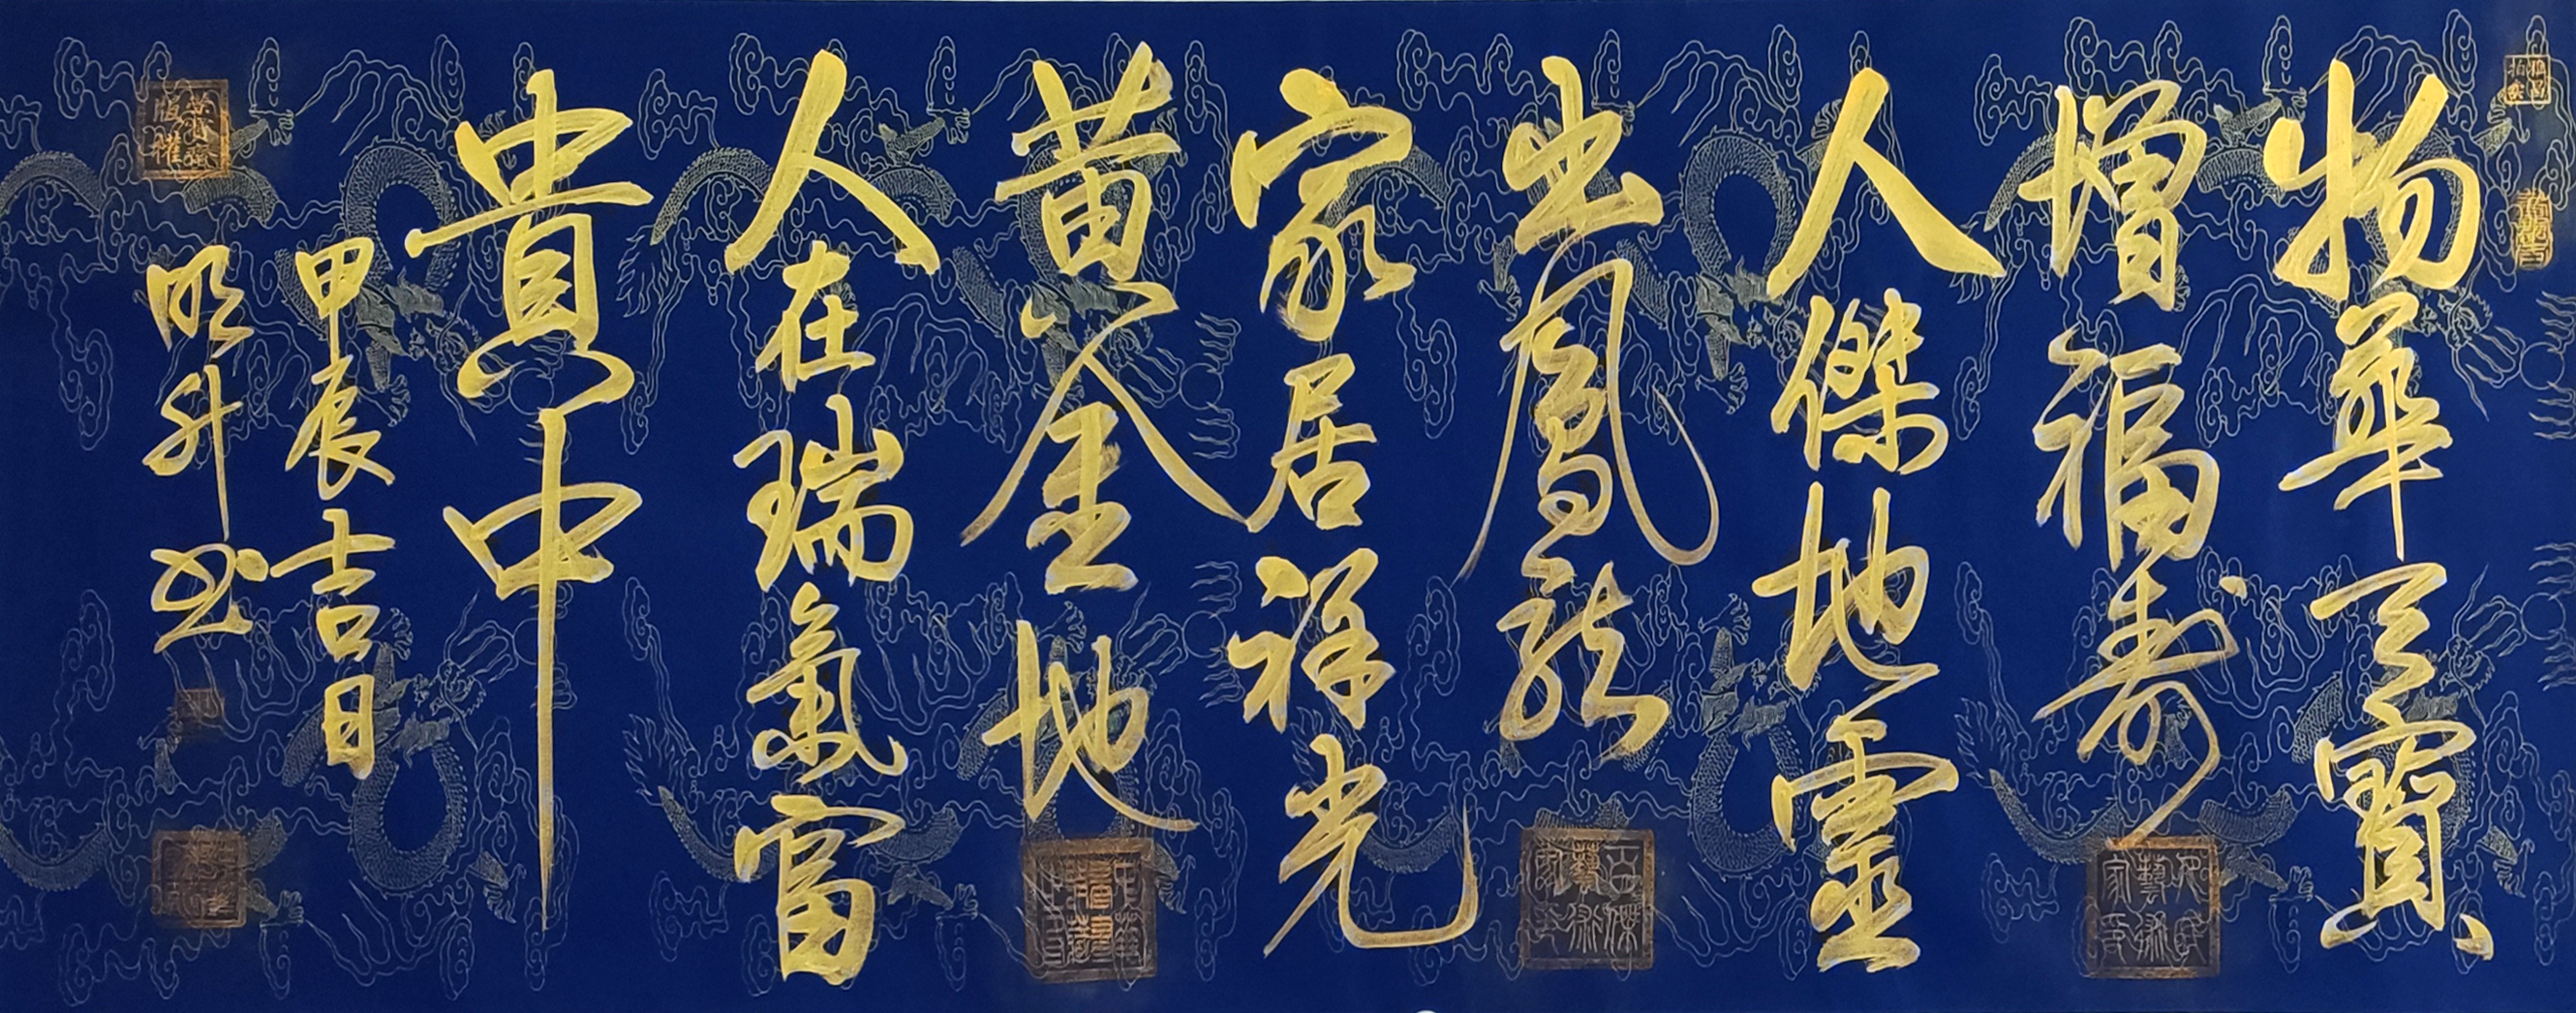 物華天寶
增福壽
人傑地靈
出鳳龍
家居祥光
黄金地
人在瑞氣富
貴中
甲辰吉日
明升書